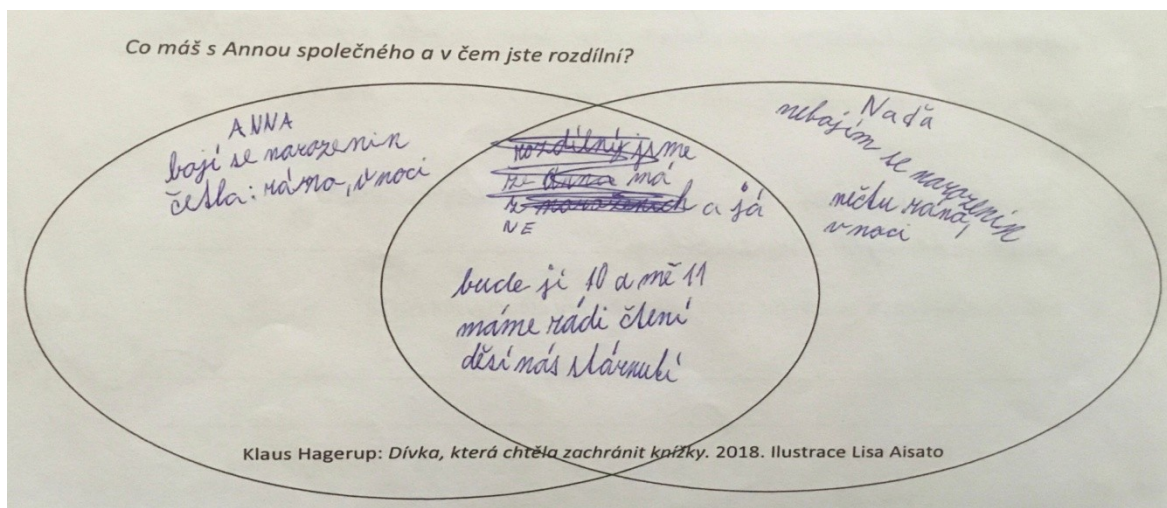 Co máš s Annou společného a v čem jste rozdílní?
ANNA
bojí se narozenin
četla: ráno, v noci
rozdílný jsme
že Anna má
a já
NE
bude jí 10 a mě 11
máme rádi čtení
děsí nás stárnutí
Naďa
nebojím se narozenin
nečtu ráno,
v noci
Klaus Hagerup: Dívka, která chtěla zachránit knížky. 2018. Ilustrace Lisa Aisato